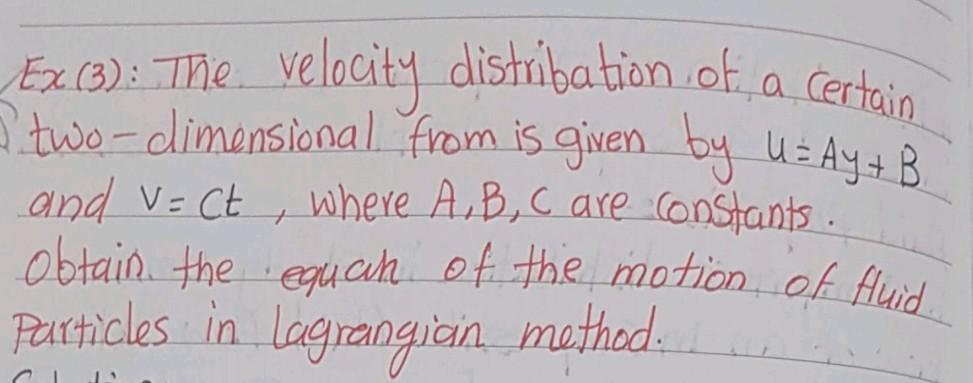 Ex (3): The velocity distribation of a Certain
two-dimensional from is given by u = Ay + B
and v = Ct , where A, B, C are constants.
Obtain the equan of the motion of fluid
Particles in Lagrangian method.